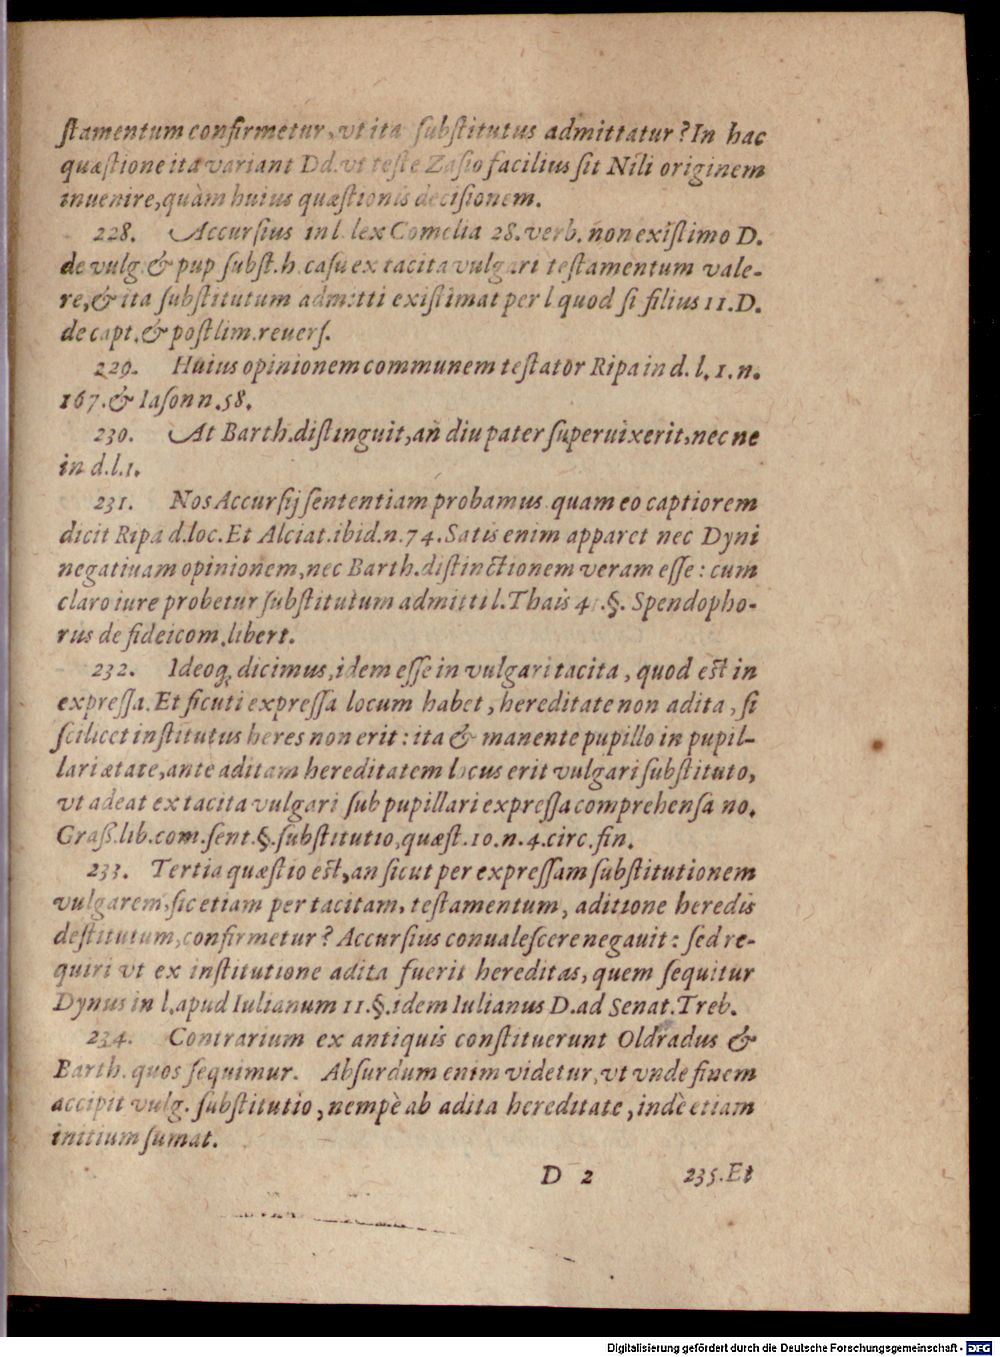 stamentum confirmetur, vt ita substitutus admittatur? In hac
quæstione ita variant Dd. vt teste Zasio facilius sit Nili originem
inuenire, quàm huius quæstionis decisionem.
228. Accursius in l. lex Cornelia 28. verb. non existimo D.
de vulg. & pup subst. h. casu ex tacita vulgari testamentum vale-
re, & ita substitutum admitti existimat per l quod si filius 11. D.
de capt. & postlim. reuers.
229. Huius opinionem communem testator Ripa in d. l. 1. n.
167. & Iason n. 58.
230. At Barth. distinguit, an diu pater superuixerit, nec ne
in d. l. 1.
231. Nos Accursij sententiam probamus quam eo captiorem
dicit Ripa d. loc. Et Alciat. ibid. n. 74. Satis enim apparet nec Dyni
negatiuam opinionem, nec Barth. distinctionem veram esse: cum
claro iure probetur substitutum admitti l. Thais §. Spendopho-
rus de fideicom. libert.
232. Ideoq; dicimus, idem esse in vulgari tacita, quod est in
expressa. Et sicuti expressa locum habet, hereditate non adita, si
scilicet institutus heres non erit: ita & manente pupillo in pupil-
lari ætate, ante aditam hereditatem locus erit vulgari substituto,
vt adeat ex tacita vulgari sub pupillari expressa comprehensa no.
Graß. lib. com. sent. §. substitutio, quæst. 10. n. 4. circ. fin.
233. Tertia quæstio est, an sicut per expressam substitutionem
vulgarem, sic etiam per tacitam, testamentum, aditione heredis
destitutum, confirmetur? Accursius conualescere negauit: sed re-
quiri vt ex institutione adita fuerit hereditas, quem sequitur
Dynus in l. apud Iulianum 11. §. idem Iulianus D. ad Senat. Treb.
234. Contrarium ex antiquis constituerunt Oldradus &
Barth. quos sequimur. Absurdum enim videtur, vt vnde finem
accipit vulg. substitutio, nempè ab adita hereditate, indè etiam
initium sumat.
D 2 235. Et
Digitalisierung gefördert durch die Deutsche Forschungsgemeinschaft - DFG